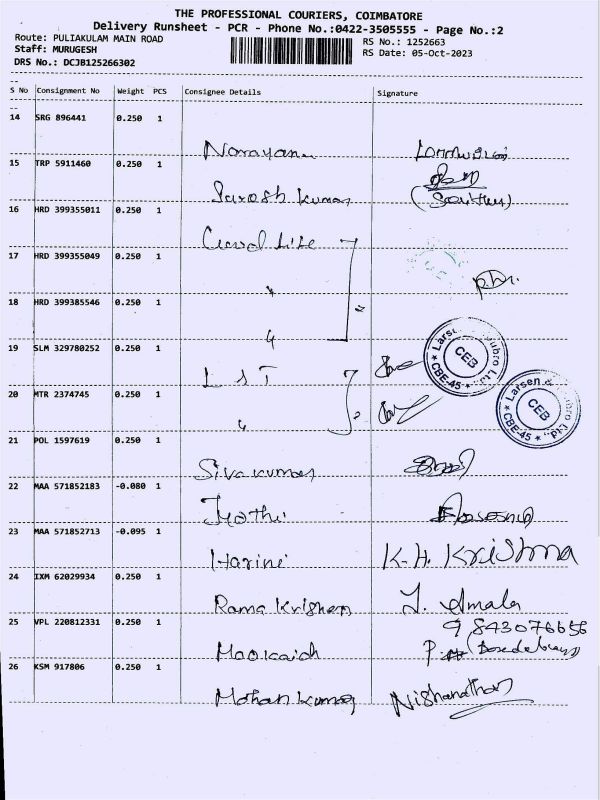 THE PROFESSIONAL COURIERS, COIMBATORE
Delivery Runsheet - PCR - Phone No.:0422-3505555 - Page No.:2
Route: PULIAKULAM MAIN ROAD
RS No.: 1252663
Staff: MURUGESH
RS Date: 05-Oct-2023
DRS No.: DCJB125266302
S No Consignment No Weight PCS Consignee Details Signature
14 SRG 896441 0.250 1
Narayana
15 TRP 5911460 0.250 1
Kumar
16 HRD 399355011 0.250 1
17 HRD 399355049 0.250 1
18 HRD 399385546 0.250 1
19 SLM 329780252 0.250 1
L & T
Larsen CEB CBE-45
20 MTR 2374745 0.250 1
Larsen & Toubro Ltd. CEB CBE-45
21 POL 1597619 0.250 1
Siva kumar
22 MAA 571852183 -0.080 1
Jyothi
23 MAA 571852713 -0.095 1
Harini K.H. Krishna
24 IXM 62029934 0.250 1
Rama Krishnan J. Amala
25 VPL 220812331 0.250 1
9843076656
26 KSM 917806 0.250 1
Mohan kumar Nishanathan